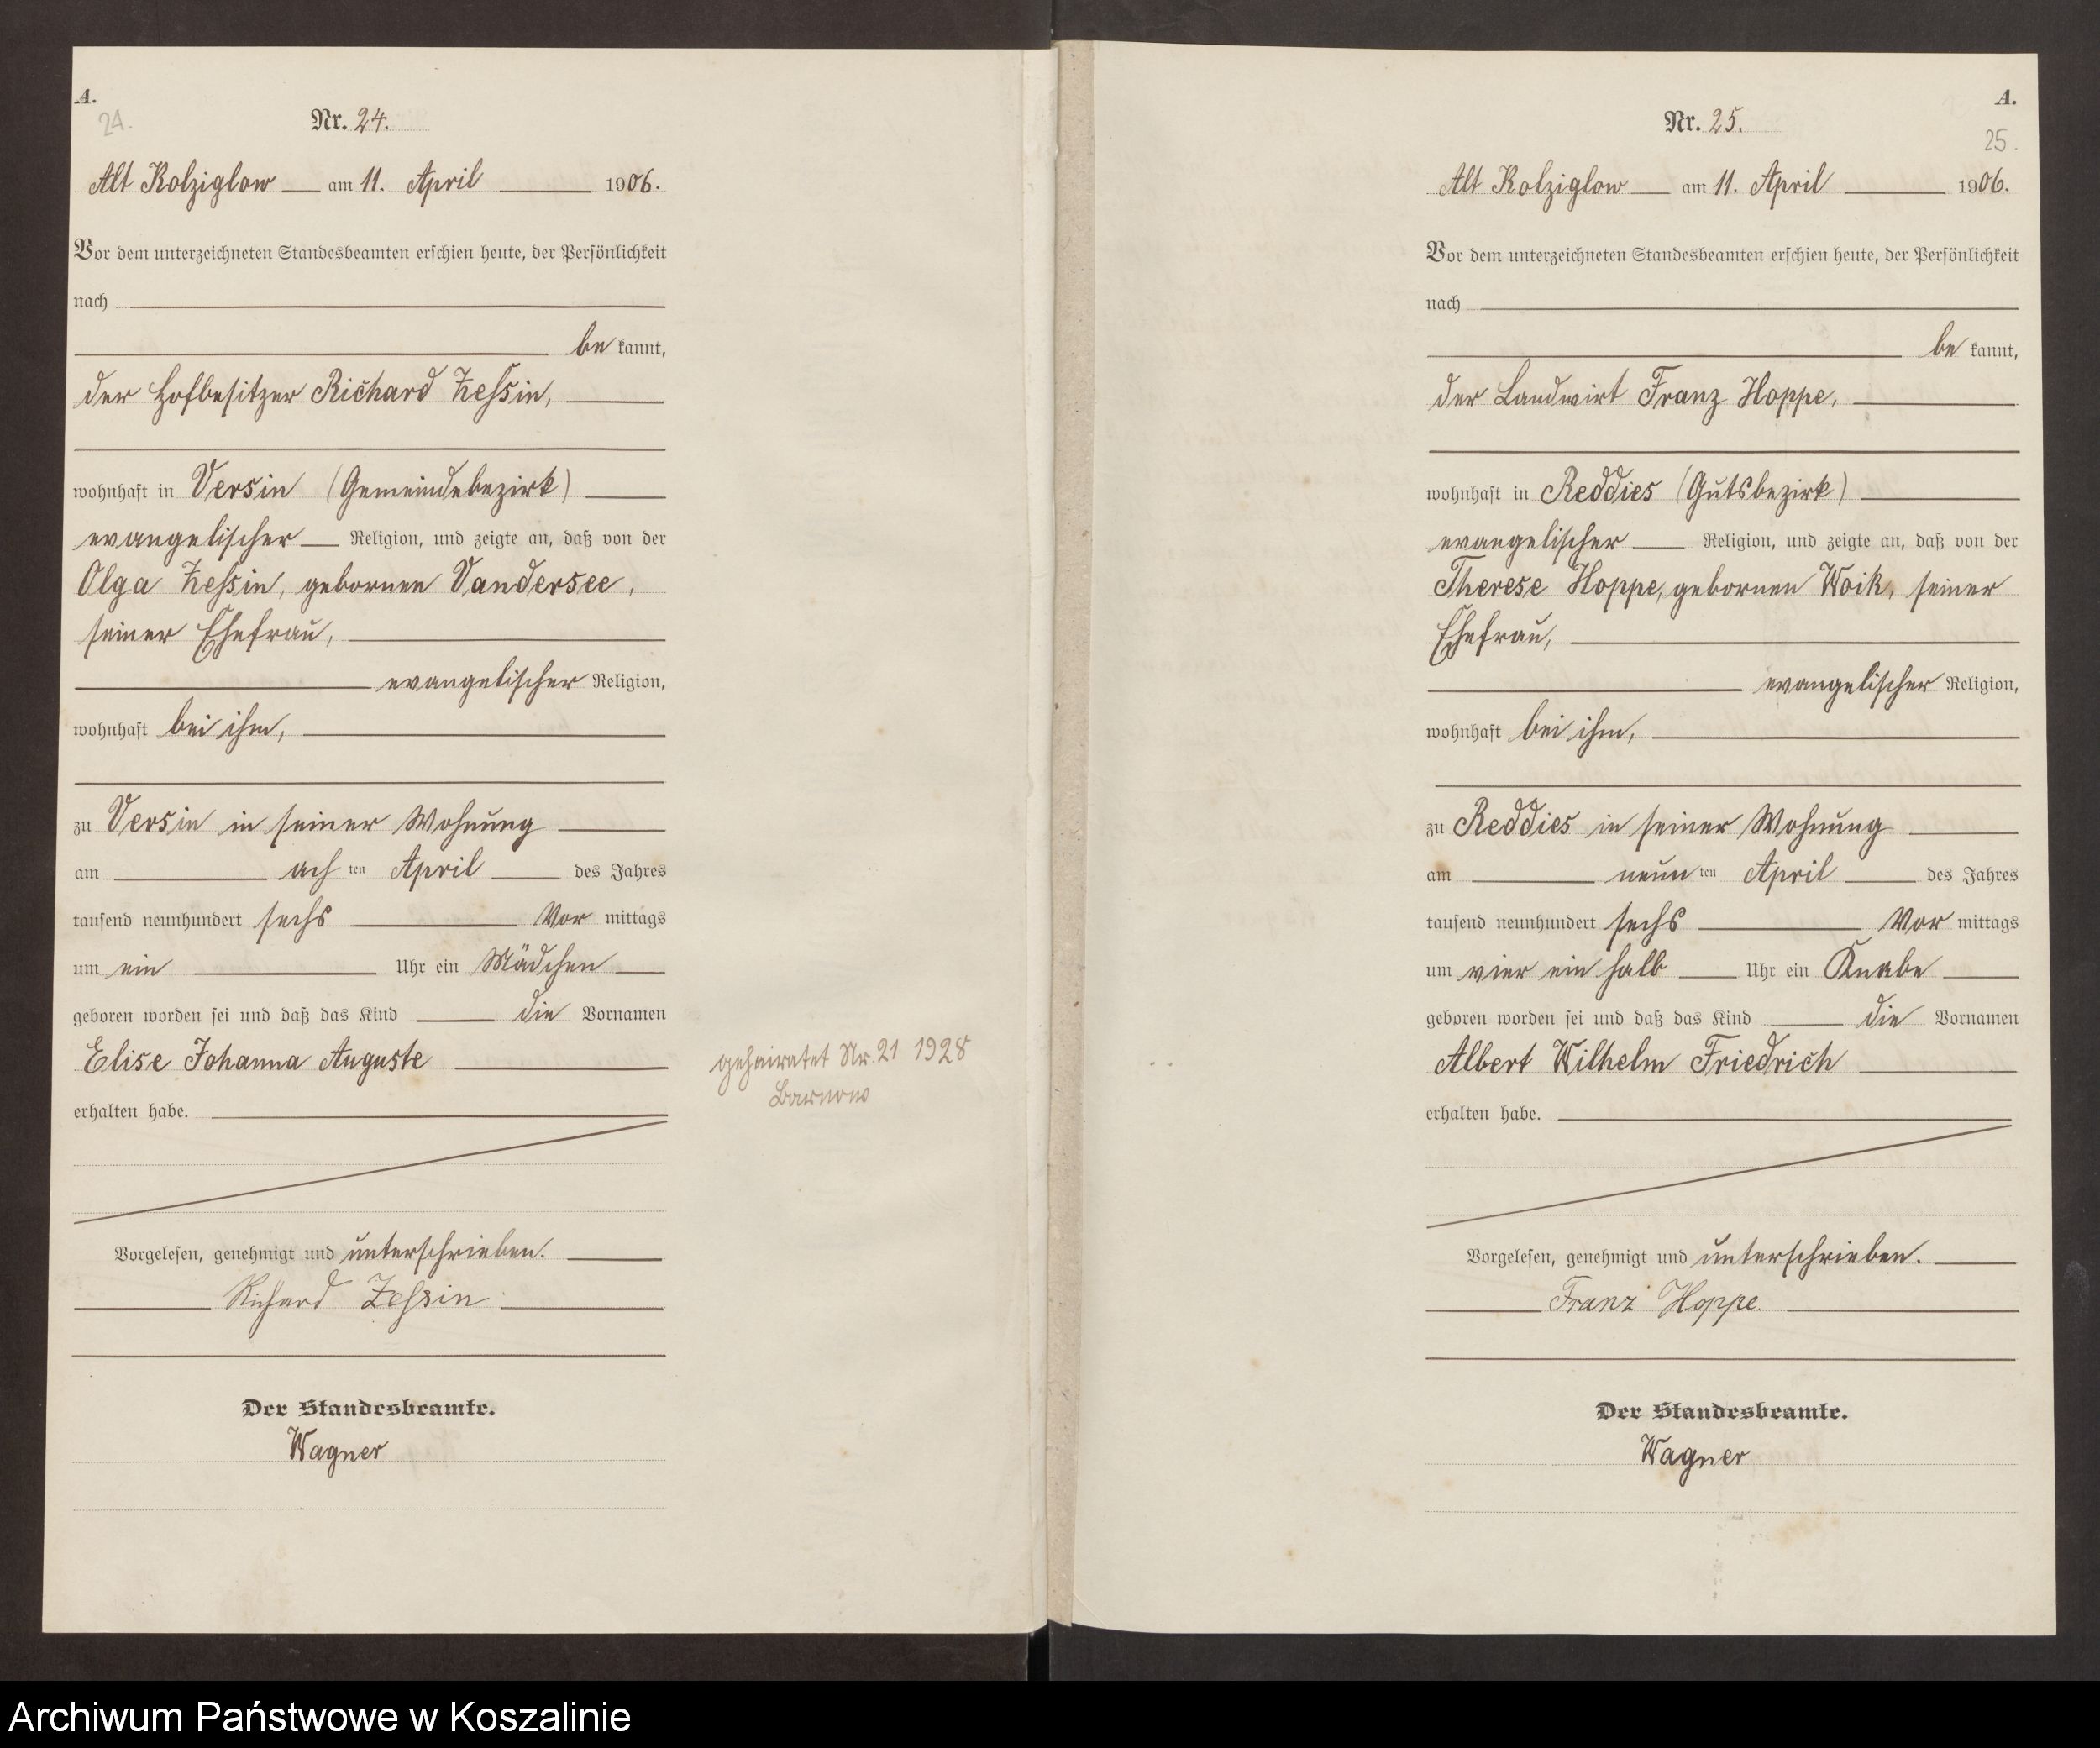 A.
24.
Nr. 24.
Alt Kolziglow am 11. April 1906.
Vor dem unterzeichneten Standesbeamten erschien heute, der Persönlichkeit
nach
be kannt,
der Hofbesitzer Richard Zessin,
wohnhaft in Versin (Gemeindebezirk)
evangelischer Religion, und zeigte an, daß von der
Olga Zessin, gebornen Vandersee,
seiner Ehefrau,
evangelischer Religion,
wohnhaft bei ihm,
zu Versin in seiner Wohnung
am ach ten April des Jahres
tausend neunhundert sechs Vor mittags
um ein Uhr ein Mädchen
geboren worden sei und daß das Kind die Vornamen
Elise Johanna Auguste
erhalten habe.
geheiratet Nr. 21 1928
Barnow
Vorgelesen, genehmigt und unterschrieben.
Richard Zessin
Der Standesbeamte.
Wagner
A.
25.
Nr. 25.
Alt Kolziglow am 11. April 1906.
Vor dem unterzeichneten Standesbeamten erschien heute, der Persönlichkeit
nach
be kannt,
der Landwirt Franz Hoppe,
wohnhaft in Reddies (Gutsbezirk)
evangelischer Religion, und zeigte an, daß von der
Therese Hoppe, gebornen Woik, seiner
Ehefrau,
evangelischer Religion,
wohnhaft bei ihm,
zu Reddies in seiner Wohnung
am neun ten April des Jahres
tausend neunhundert sechs Vor mittags
um vier ein halb Uhr ein Knabe
geboren worden sei und daß das Kind die Vornamen
Albert Wilhelm Friedrich
erhalten habe.
Vorgelesen, genehmigt und unterschrieben.
Franz Hoppe.
Der Standesbeamte.
Wagner
Archiwum Państwowe w Koszalinie